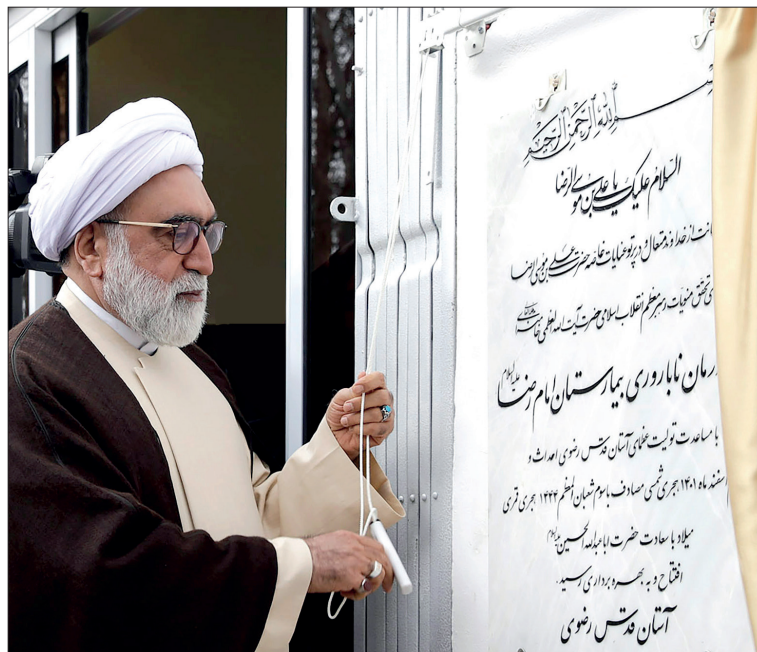 بسم الله الرحمن الرحیم
السلام علیک یا علی بن موسی الرضا
از خداوند متعال و در پرتو عنایات خاصه حضرت علی بن موسی الرضا
تحقق منویات رهبر معظم انقلاب اسلامی حضرت آیت الله العظمی خامنه‌ای
ناباروری بیمارستان امام رضا علیه السلام
با مساعدت تولیت عظمای آستان قدس رضوی احداث و
اسفند ماه ۱۴۰۱ هجری شمسی مصادف با سوم شعبان المعظم ۱۴۴۴ هجری قمری
میلاد با سعادت حضرت اباعبدالله الحسین
افتتاح و به بهره برداری رسید.
آستان قدس رضوی